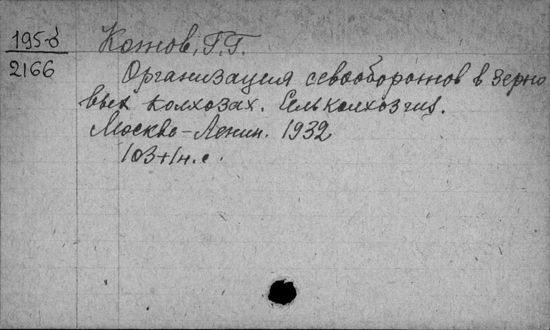 195-б Котов, Г.Г.
2166 Организация севооборотов в зерно
вых колхозах. Сельколхозгиз.
Москва-Ленин. 1932
103+1н.с.